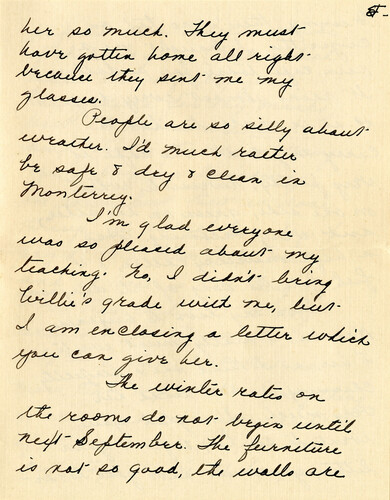 8-
her so much. They must
have gotten home all right
because they sent me my
glasses.
People are so silly about
weather. I'd much rather
be safe & dry & clean in
Monterrey.
I'm glad everyone
was so pleased about my
teaching. No, I didn't bring
Willie's grade with me, but
I am enclosing a letter which
you can give her.
The winter rates on
the rooms do not begin until
next September. The furniture
is not so good, the walls are